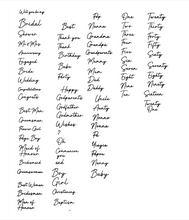 Will you be my
Bridal
Shower
Mr & Mrs
Anniversary
Engaged
Bride
Wedding
Congratulations
Congrats
Best Man
Groomsman
Flower Girl
Page Boy
Maid of Honour
Bridesmaid
Groomswoman
Best Woman
Bridesman
Man of Honour
Best
Thank you
Thank
Birthday
Baby
Party
Happy
Godparents
Godfather
Godmother
Wishes
?
Oh
and
Boy
Girl
Christening
Baptism
Pop
Nanna
Grandma
Grandpa
Grandparents
Nanny
Mum
Dad
Daddy
Uncle
Aunty
Nonna
Nonno
Pa
Poppy
Nanny
Baby
One
Two
Three
Four
Five
Six
Seven
Eight
Nine
Ten
Twenty
Thirty
Forty
Fifty
Sixty
Seventy
Eighty
Ninety
Sixteen
Twenty One